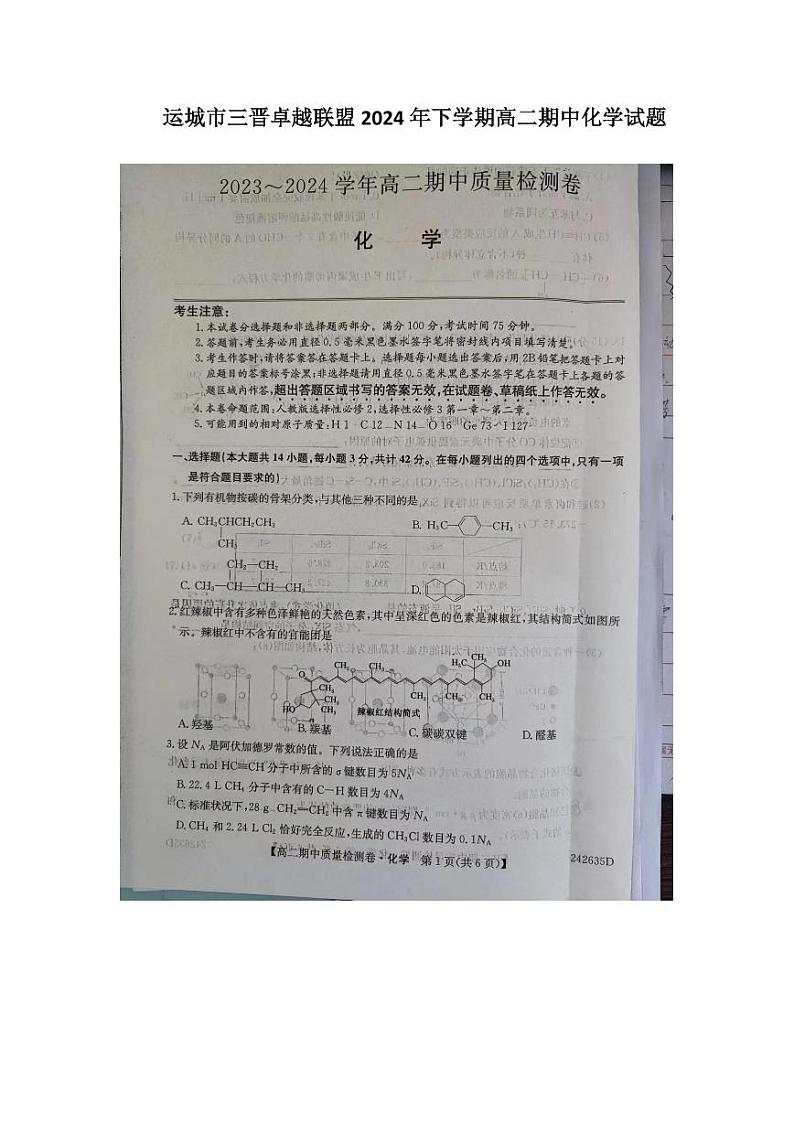 运城市三晋卓越联盟2024年下学期高二期中化学试题
2023～2024学年高二期中质量检测卷
化 学
考生注意：
1.本试卷分选择题和非选择题两部分。满分100分，考试时间75分钟。
2.答题前，考生务必用直径0.5毫米黑色墨水签字笔将密封线内项目填写清楚。
3.考生作答时，请将答案答在答题卡上。选择题每小题选出答案后，用2B铅笔把答题卡上对
应题目的答案标号涂黑；非选择题请用直径0.5毫米黑色墨水签字笔在答题卡上各题的答
题区域内作答，超出答题区域书写的答案无效，在试题卷、草稿纸上作答无效。
4.本卷命题范围：人教版选择性必修2，选择性必修3第一章～第二章。
5.可能用到的相对原子质量：H 1 C 12 N 14 O 16 Ge 73 I 127
一、选择题(本大题共14小题，每小题3分，共计42分。在每小题列出的四个选项中，只有一项
是符合题目要求的)
1.下列有机物按碳的骨架分类，与其他三种不同的是
A. CH₃CHCH₂CH₃ B. H₃C CH₃
CH₃
CH₂—CH₂
C. CH₃—CH—CH—CH₃ D.
2.红辣椒中含有多种色泽鲜艳的天然色素，其中呈深红色的色素是辣椒红，其结构简式如图所
示。辣椒红中不含有的官能团是
O CH₃ CH₃ H₃C CH₃ OH
CH₃ CH₃ CH₃ CH₃ CH₃ CH₃
HO CH₃ 辣椒红结构简式
A.羟基 B.羰基 C.碳碳双键 D.醛基
3.设 N_A 是阿伏加德罗常数的值。下列说法正确的是
A.1 mol HC≡CH 分子中所含的σ键数目为5N_A
B.22.4 L CH₄ 分子中含有的C—H数目为4N_A
C.标准状况下，28 g CH₂=CH₂ 中含π键数目为N_A
D.CH₄ 和2.24 L Cl₂ 恰好完全反应，生成的CH₃Cl数目为0.1N_A
【高二期中质量检测卷·化学 第1页(共6页)】 242635D